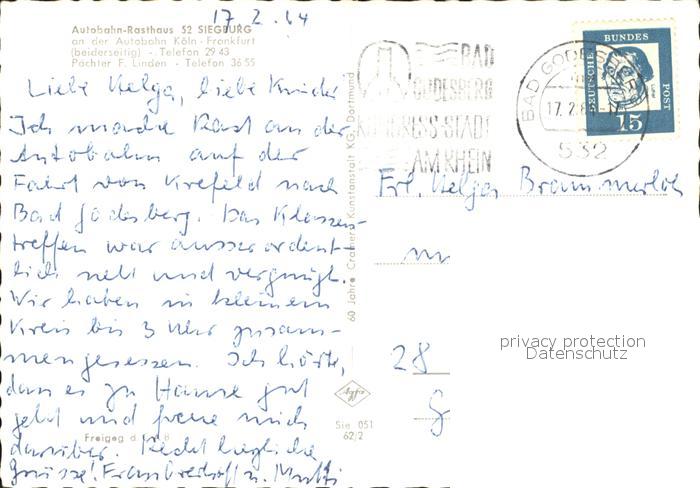 17.2.64
Autobahn-Rasthaus 52 SIEGBURG
an der Autobahn Köln-Frankfurt
(beiderseitig) - Telefon 29 43
Pächter F. Linden - Telefon 36 55
Liebe Helga, liebe Kinder
Ich mache Rast an der
Autobahn auf der
Fahrt von Krefeld nach
Bad Godesberg. Das Klassen-
treffen war ausserordent-
lich nett und vergnügt.
Wir haben in kleinem
Kreis bis 3 Uhr zusam-
mengesessen. Ich hörte,
dass es zu Hause gut
geht und freue mich
darüber. Recht herzliche
Grüsse! u. Mutti
Freigeg d
60 Jahre Cramers Kunstanstalt KG, Dortmund
Agfa
Sie 051
62/2
BAD
GODESBERG
KONGRESS-STADT
AM RHEIN
BAD GODESBERG
17.2.64
532
DEUTSCHE
BUNDES
POST
15
Frl. Helga
28
privacy protection
Datenschutz